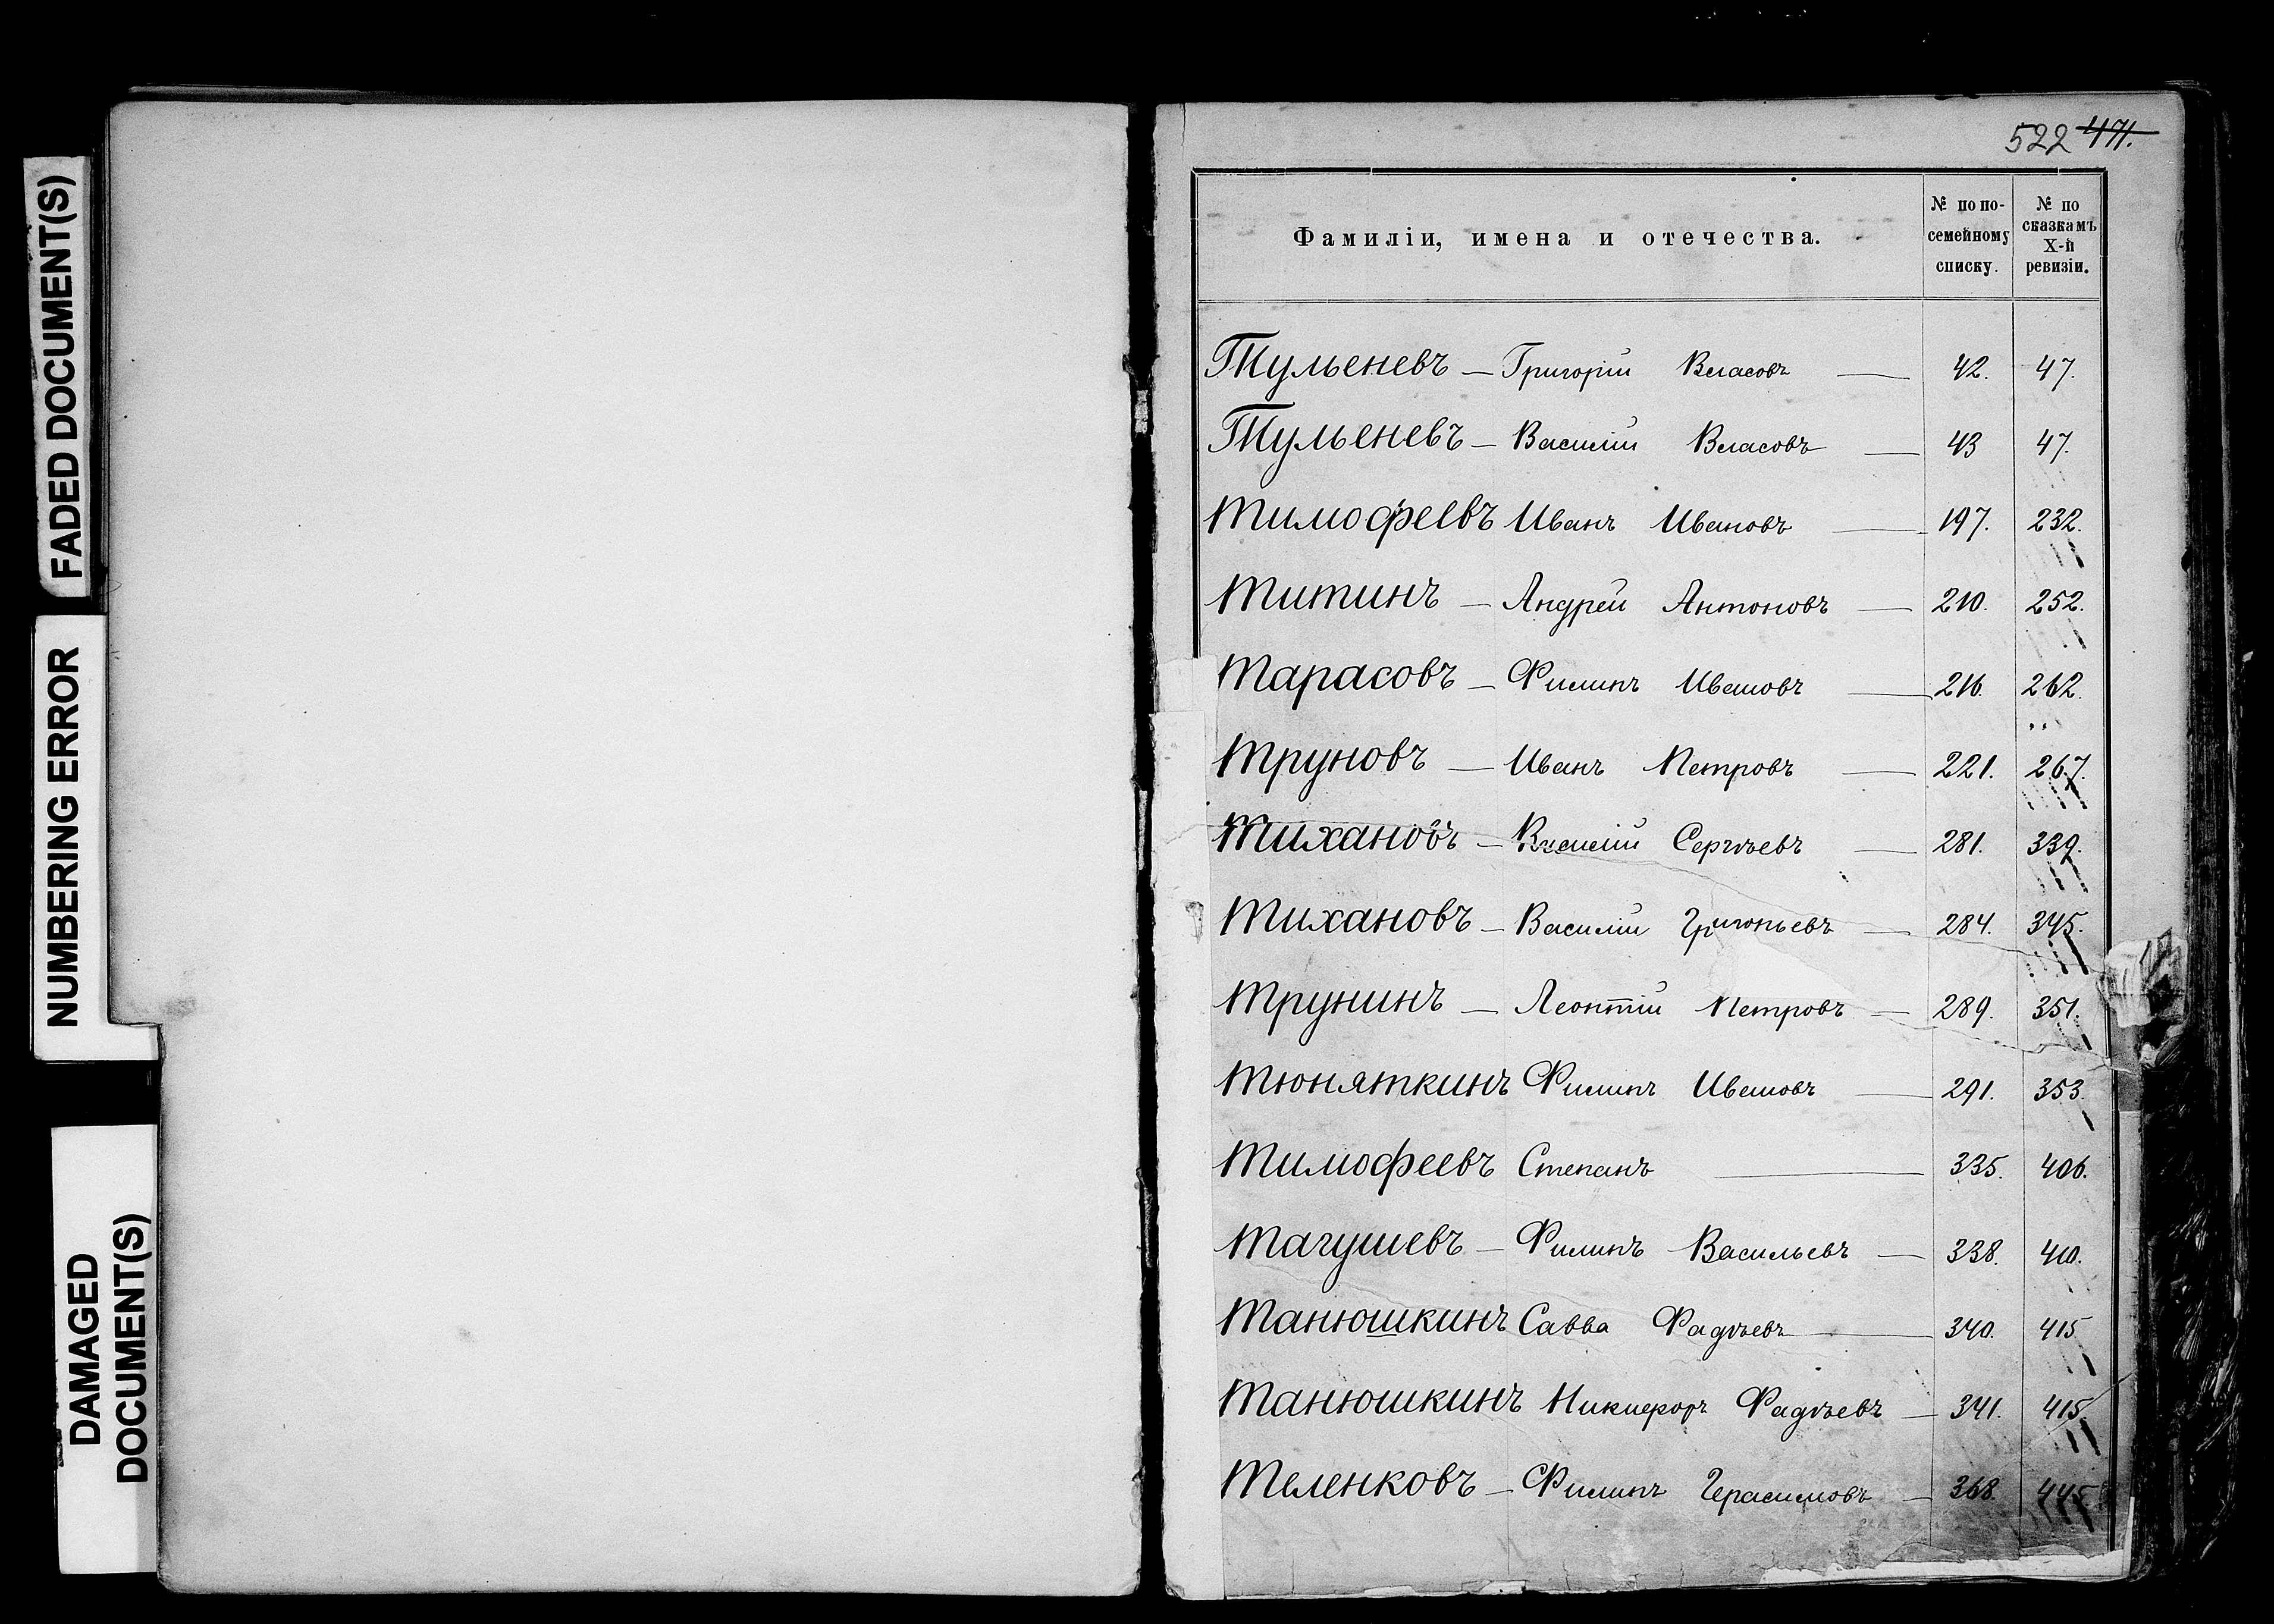 FADED DOCUMENT(S)
NUMBERING ERROR
DAMAGED
DOCUMENT(S)
522 471.
Фамиліи, имена и отечества.
№ по по-
семейному
списку.
№ по
сказкамъ
X-й
ревизіи.
Тульеневъ — Григорій Власовъ — 42. 47.
Тульеневъ — Василій Власовъ — 43 47.
Тимофеевъ Иванъ Ивановъ — 197. 232.
Титинъ — Андрей Антоновъ — 210. 252.
Тарасовъ — Филипъ Ивановъ — 216. 262.
Труновъ — Иванъ Петровъ — 221. 267.
Тихановъ — Василій Сергѣевъ — 281. 339.
Тихановъ — Василій Григорьевъ — 284. 345.
Трунинъ — Леонтій Петровъ — 289. 351.
Тюняткинъ Филипъ Ивановъ — 291. 353.
Тимофеевъ Степанъ — 335. 406.
Тагушевъ — Филипъ Васильевъ — 338. 410.
Танюшкинъ Савва Фадѣевъ — 340. 415
Танюшкинъ Никиеоръ Фадѣевъ — 341. 415.
Теленковъ — Филипъ Герасимовъ — 368. 445.